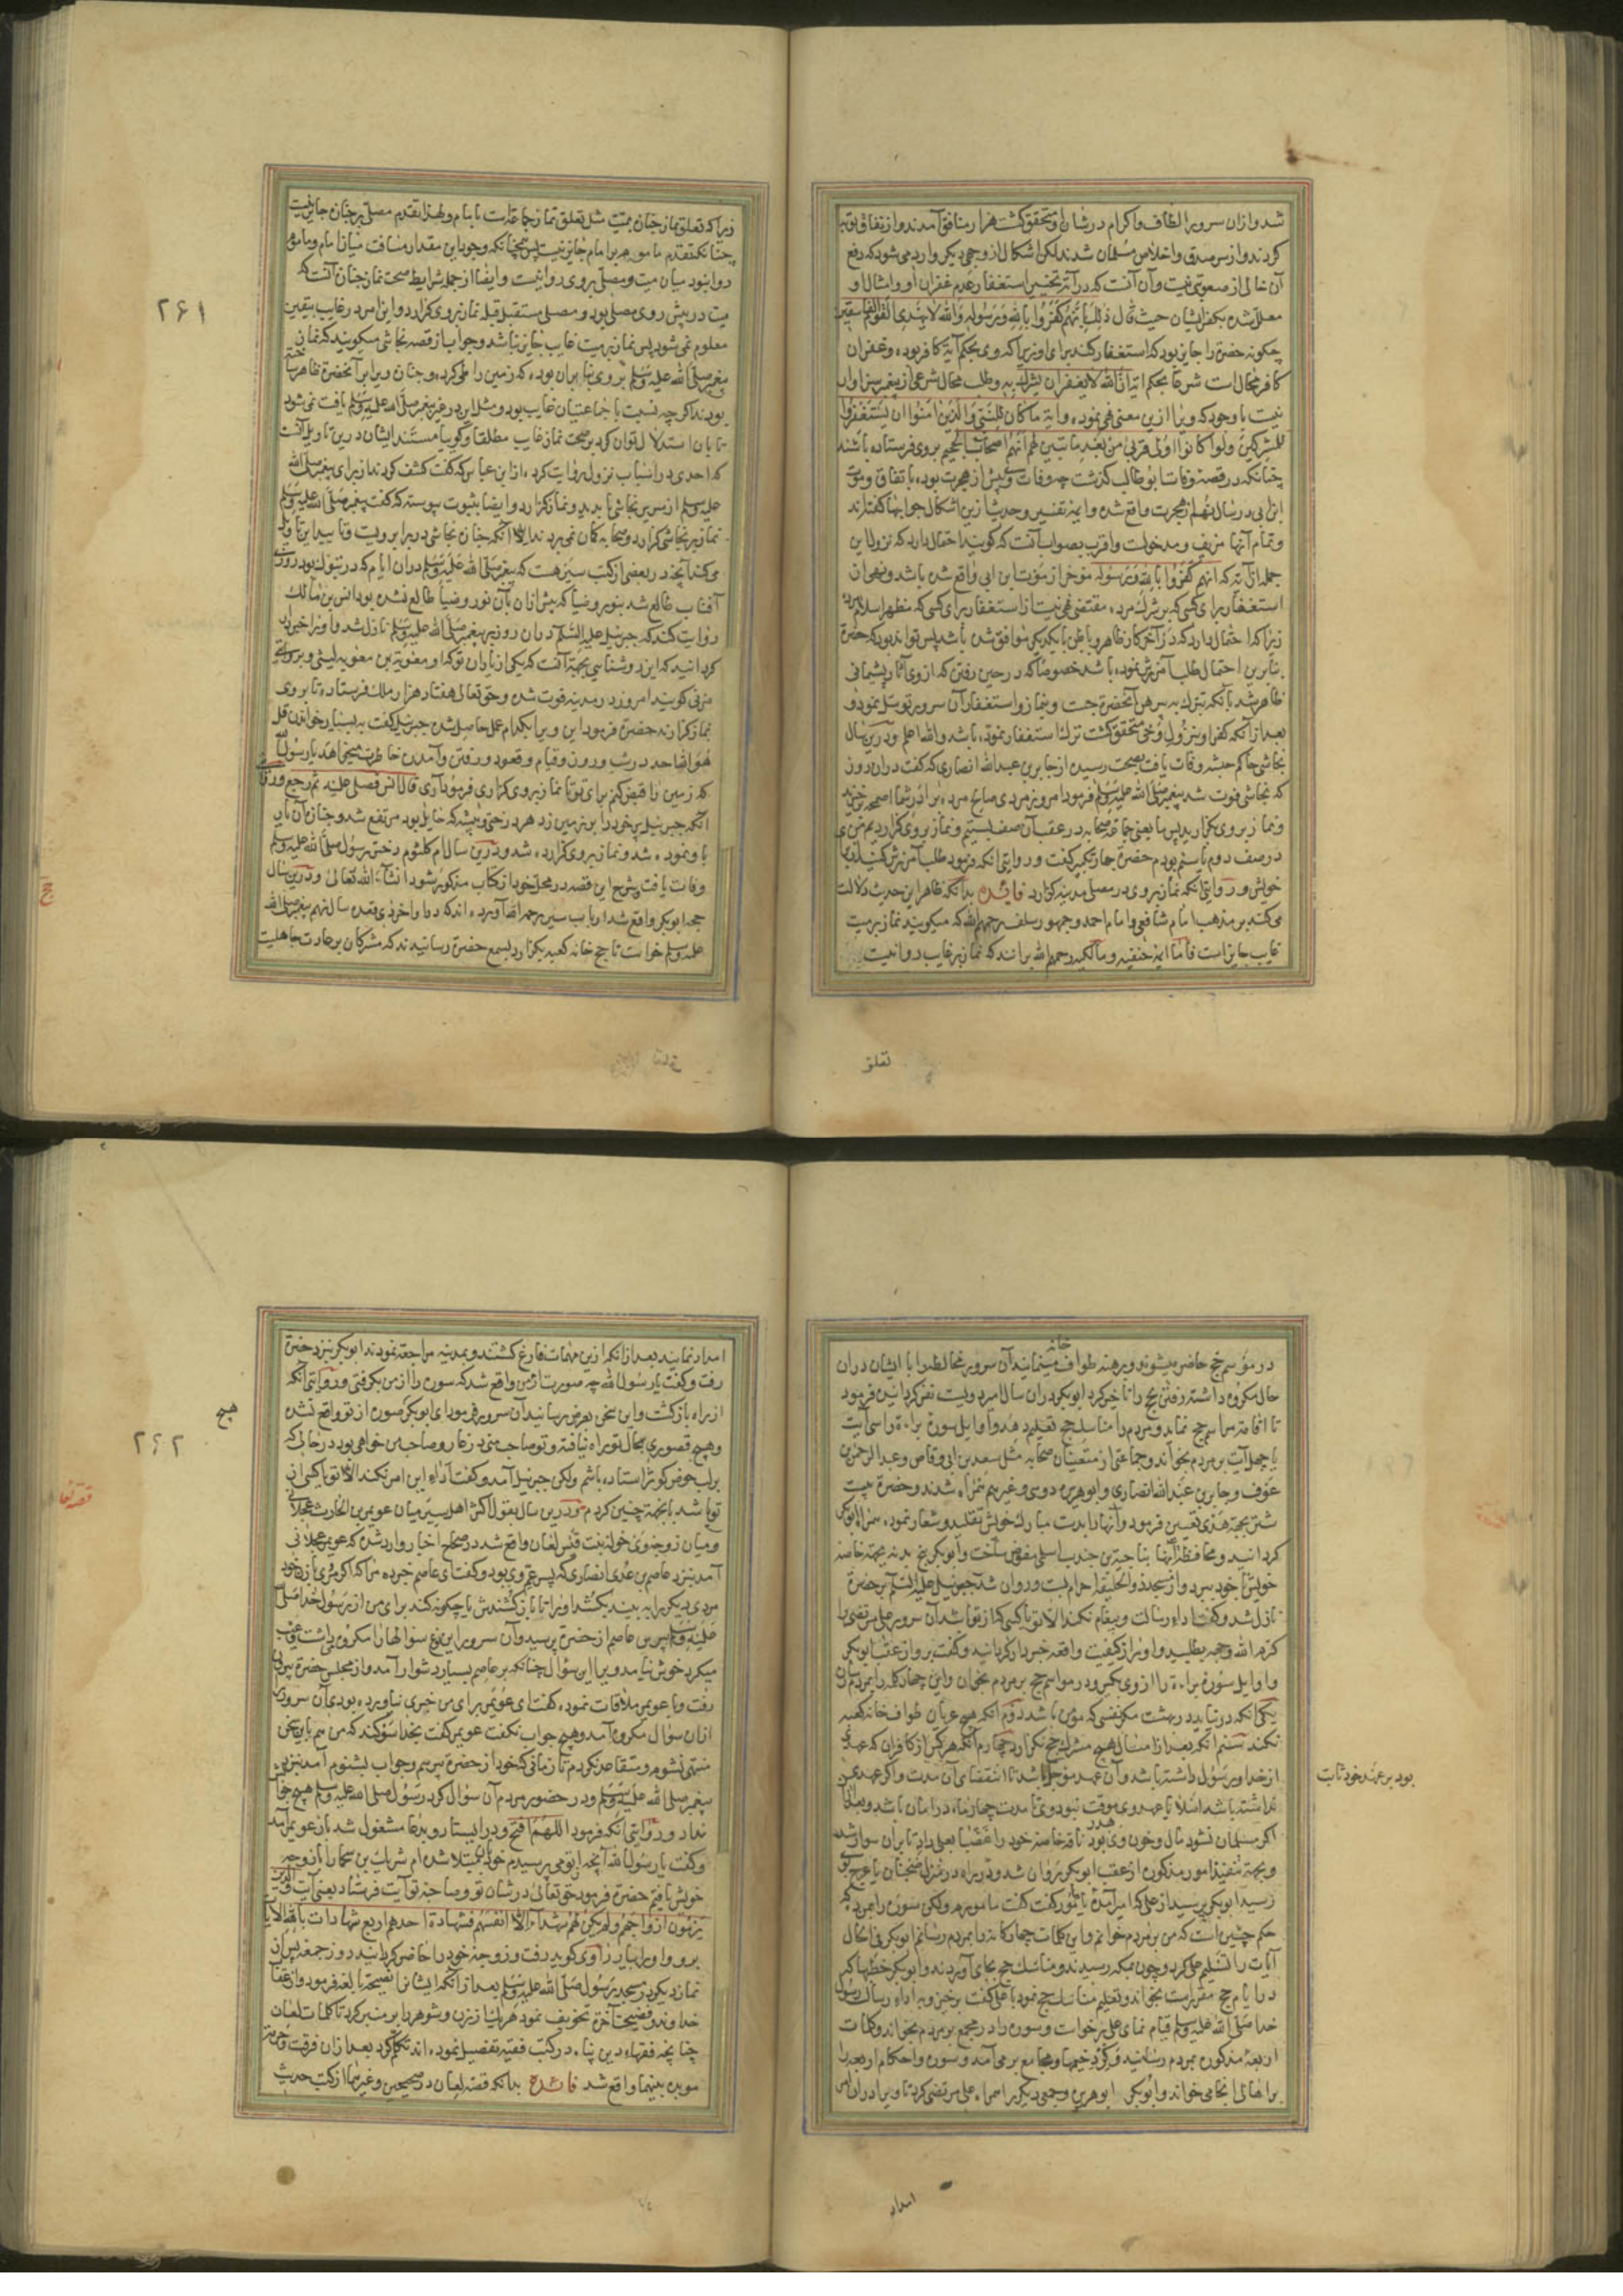 شد و از ان سرور الطاف و اکرام در شان او متحقق گشت هزار منافق آمدند و از نفاق توبه
کردند و از سر صدق و اخلاص مسلمان شدند لکن اشکال از وجهی دیکر وارد می شود که رفع
آن خالی از صعوبتی نیست و آن آنست که در آیه تخییر استغفار عدم غفران او و امثال او
معلل شده بکفر ایشان حیث قال ذلك بانهم کفروا بالله و رسوله والله لا یهدی القوم الفاسقین
چکونه حضرة را جایز بود که استغفار کند برای او زیرا که وی بحکم آیة کافر بوده و غفران
کافر محال است شرعا بحکم ایة ان الله لا یغفر ان یشرك به و طلب محال شرعی از پیغمبر سزاوار
نیست با وجود که ویرا ازین معنی نهی نموده و ایة ما کان للنبی والذین امنوا ان یستغفروا
للمشرکین ولو کانوا اولی قربی من بعد ما تبین لهم انهم اصحاب الجحیم بر وی فرستاده باشند
چنانکه در قصه وفات ابو طالب کذشت چه وفات وی پیش از هجرت بوده باتفاق و موت
ابن ابی در سال نهم از هجرت واقع شده و ایمه تفسیر و حدیث ازین اشکال جوابها کفته اند
و تمام آنها مزیف و مدخولست و اقرب بصواب آنست که کویند احتمال دارد که نزول این
جمله از آیه که انهم کفروا بالله و رسوله موخر از موت ابن ابی واقع شده باشد و نهی از
استغفار برای کسی که بر شرك مرده مقتضی نهی نیست از استغفار برای کسی که مظهر اسلام مرده
زیرا که احتمال دارد که در آخر کار ظاهر و باطن با یکدیکر موافق شده باشد پس تواند بود که حضرة
بنابرین احتمال طلب آمرزش نموده باشد خصوصا که در حین رفتن که از وی آثار پشیمانی
ظاهر شد بآنکه تبرك به پیرهن آنحضرة جست و بنماز و استغفار آن سرور توسل نمود و
بعد از آنکه کفر او بنزول وحی متحقق کشت ترك استغفار نموده باشد والله اعلم و درین سال
نجاشی حاکم حبشه وفات یافت بصحت رسیده از جابر بن عبد الله انصاری که کفت در ان روز
که نجاشی فوت شد پیغمبر صلی الله علیه وسلم فرمود امروز مردی صالح مرده برادر شما اصحمه برخیزید
و نماز بر وی بکزارید پس ما یعنی جماعة صحابه در عقب آن صف بستیم و نماز بر وی کزاردیم من
در صف دوم یا سیم بودم حضرة چهار تکبیر کفت و در وایتی انکه فرمود طلب آمرزش کنید برادر
خویش و در روایتی آنکه نماز بر وی در مصلی مدینه کزارد فائده بدانکه ظاهر این حدیث دلالت
می کند بر مذهب امام شافعی و امام احمد و جمهور سلف رحمهم الله که میکویند نماز بر میت
غایب جایز است فاما ایمه حنفیه و مالکیه رحمهم الله برانند که نماز بر غایب روا نیست
تعلق
۲۶۱
زیرا که تعلق نماز جنازه بمیت مثل تعلق نماز جماعتست با امام و لهذا تقدم مصلی بر جنازه جایز نیست
چنانکه تقدم ماموم بر امام جایز نیست پس همچنانکه وجود این مقدار مسافت میان امام و ماموم
روا نبود میان میت و مصلی بر وی روا نیست و ایضا از جمله شرایط صحت نماز جنازه آنست که
میت در پیش روی مصلی بود و مصلی مستقبل قبله نماز بر وی کزارد و این امر در غایب بیقین
معلوم نمی شود پس نماز بر میت غایب جایز نباشد و جواب از قصه نجاشی میکویند که نماز
پیغمبر صلی الله علیه وسلم بر وی بنابران بوده که زمین را طی کرده و جنازه ویرا بر آنحضرة ظاهر ساخته
بودند اکرچه نسبت با جماعتیان غایب بود و مثل این در غیر پیغمبر صلی الله علیه وسلم یافت نمی شود
تا بان استدلال توان کرد بر صحت نماز غایب مطلقا و کوییا مستند ایشان درین تاویل آنست
که احدی در اسباب نزول روایت کرده از ابن عباس که کفت کشف کردند از برای پیغمبر صلی الله
علیه وسلم از سریر نجاشی تا بدید و نماز کزارد و ایضا بثبوت پیوسته که کفت پیغمبر صلی الله علیه وسلم
نماز بر نجاشی کزارد و صحابه کمان نمی بردند الا آنکه جنازه نجاشی در برابر ویست و تایید این تاویل
می کند آنچه در بعضی از کتب سیر هست که پیغمبر صلی الله علیه وسلم دران ایام که در تبوك بود روزی
آفتاب طالع شد بنور و ضیا که پیش ازان بآن نور و ضیا طالع نشده بود انس بن مالك
روایت کند که جبرئیل علیه السلام دران روز بر پیغمبر صلی الله علیه وسلم نازل شد و او را خبردار
کردانید که این روشنایی بجهة آنست که یکی از یاران تو که او معویة بن معویه لیثی و بروایتی
مزنی کویند امروز در مدینه فوت شده و حق تعالی هفتاد هزار ملك فرستاده تا بر وی
نماز کزارند حضرة فرمود این ویرا بکدام عمل حاصل شده جبرئیل کفت به بسیار خواندن قل
هو الله احد در شب و روز و قیام و قعود و رفتن و آمدن خاطرت میخواهد یا رسول الله
که زمین را قبض کنم برای تو تا نماز بر وی کزاری فرمود آری قال انس فصلی علیه ثم رجع
انکه جبرئیل پر خود را بر زمین زد هر درختی و پشته که حایل بود مرتفع شد و جنازه آن یار
باو نموده شد و نماز بر وی کزارده شد و درین سال ام کلثوم دختر رسول صلی الله علیه وسلم
وفات یافت و شرح این قصه در محل خود از کتاب مذکور شود انشاء الله تعالی و درین سال
حج ابو بکر واقع شد ارباب سیر رحمهم الله آورده اند که در اواخر ذی قعده سال نهم پیغمبر صلی الله
علیه وسلم خواست تا حج خانه کعبه بکزارد بسمع حضرة رسانیدند که مشرکان بر عادت جاهلیت
حج
در موسم حج حاضر میشوند و برهنه طواف خانه مینمایند آن سرور مخالطه را با ایشان دران
حال مکروه داشته رفتن حج را تاخیر کرد ابو بکر را دران سال امیر دویست نفر کردانیده فرمود
تا اقامت مراسم حج نماید و مردم را مناسك حج تعلیم دهد و اوایل سورة براءة را سی آیت
یا چهل آیت بر مردم بخواند و جماعتی از متعینان صحابه مثل سعد بن ابی وقاص و عبد الرحمن بن
عوف و جابر بن عبد الله انصاری و ابو هریره دوسی و غیرهم همراه شدند و حضرة بیست
شتر بجهة هدی تعیین فرمود و آنها را بدست مبارك خویش تقلید و شعار نموده همراه ابو بکر
کردانید و محافظة آنها بناجیة بن جندب اسلمی مفوض ساخت و ابو بکر پنج بدنه بجهة خاصه
خویش با خود ببرد و از مسجد ذو الحلیفه احرام بست و روان شد جبرئیل علیه السلام بر حضرة
نازل شد و کفت اداء رسالت و پیغام نکند الا تو یا کسی که از تو باشد آن سرور علی مرتضی را
کرم الله وجهه بطلبید و او را از کیفیت واقعه خبردار کردانید و کفت برو از عقب ابو بکر
و اوایل سوره براءة را از وی بکیر و در مواسم حج بر مردم بخوان و این چهار کلمه را بمردم رسان
یکی آنکه در نیاید در بهشت مکر نفسی که مؤمن باشد دوم آنکه هیچ عریان طواف خانه کعبه
نکند سیم آنکه بعد از امسال هیچ مشرك حج نکزارد چهارم آنکه هر کس از کافران که عهدی
از خدا و رسول داشته باشد و آن عهد موجل باشد تا انقضای آن مدت و اکر عهدی
نداشته باشد اصلا یا عهد وی موقت نبود وی تا مدت چهار ماه در امان باشد و بعد ازان
اکر مسلمان نشود مال و خون وی هدر بود ناقه خاصه خود را غضبا بعلی داد تا بران سوار شده
و بجهة تنفیذ امور مذکوره از عقب ابو بکر روان شد و در راه در منزل ضجنان یا عرج بوی
رسید ابو بکر پرسید از علی که امیر آمدی یا مامور کفت کفت مامورم ولکن سوره را بمن ده که
حکم چنین است که من بر مردم خوانم و این کلمات چهارکانه را بمردم رسانم ابو بکر فی الحال
آیات را تسلیم علی کرد و چون بمکه رسیدند و مناسك حج بجای آوردند و ابو بکر خطبها که
در ایام حج مقرر است بخواند و تعلیم مناسك حج نمود با علی کفت برخیز و به اداء رسالت رسول
خدا صلی الله علیه وسلم قیام نمای علی برخواست و سوره را در مجمع بر مردم بخواند و کلمات
اربعه مذکوره بمردم رسانید و کرد خیمها و مجامع بر می آمد و سوره و احکام اربعه را
بر اهالی انجا می خواند و ابو بکر ابو هریره و جمعی دیکر را همراه علی مرتضی کرد تا ویرا دران امر
بود بر عهد خود ثابت
امداد
۲۶۲
امداد نمایند بعد از انکه ازین مهمات فارغ کشتند و بمدینه مراجعه نمودند ابو بکر نزد حضرة
رفت و کفت یا رسول الله چه صورت از من واقع شد که سوره را از من بکرفتی و در وایتی آنکه
از راه بازکشت و این سخن بعرض رسانید آن سرور فرمود ای ابو بکر صوره از تو واقع نشده
و هیچ قصوری بحال تو راه نیافته و تو صاحب منی در غار و صاحب من خواهی بود در حالی که
بر لب حوض کوثر استاده باشم ولکن جبرئیل آمد و کفت اداء این امر نکند الا تو یا کسی از
تو باشد بجهة چنین کردم و درین سال بقول اکثر اهل سیر میان عویمر بن الحارث عجلانی
و میان زوجه وی خوله بنت قیس لعان واقع شد در صحاح اخبار وارد شده که عویمر عجلانی
آمد بنزد عاصم بن عدی انصاری که پسر عم وی بود و کفت ای عاصم خبر ده مرا که اکر مردی با زن خود
مردی دیکر را به بیند بکشد او را تا باز کشندش یا چکونه کند برای من از رسول خدا صلی الله
علیه وسلم بپرس عاصم از حضرة پرسید و آن سرور این نوع سوالها را مکروه میداشت و عیب
میکرد خوش نیامد ویرا این سؤال چنانکه بر عاصم بسیار دشوار آمد و از مجلس حضرة بیرون
رفت و با عویمر ملاقات نموده کفت ای عویمر برای من خیری نیاورده بودی آن سرور را
ازان سوال مکروه آمد و هیچ جواب نکفت عویمر کفت بخدا سوکند که من هم باین سخن
منتهی نشوم و متقاعد نکردم تا زمانی که خود از حضرة بپرسم و جواب بشنوم آمد بنزد
پیغمبر صلی الله علیه وسلم و در حضور مردم آن سؤال کرد رسول صلی الله علیه وسلم هیچ جواب
نداد و در وایتی آنکه فرمود اللهم افتح و درایستاد و بدعا مشغول شد باز عویمر آمد
و کفت یا رسول الله آنچه از تو می پرسیدم خود بآن مبتلا شده ام شریك بن سحما را با زوجه
خویش یافتم حضرة فرمود حق تعالی در شان تو و صاحبه تو آیت فرستاد یعنی آیت والذین
یرمون ازواجهم ولم یکن لهم شهداء الا انفسهم فشهادة احدهم اربع شهادات بالله الآیة
برو و او را بیار راوی کوید رفت و زوجه خود را حاضر کردانید روز جمعه پس از
نماز دیکر در مسجد رسول صلی الله علیه وسلم بعد از آنکه ایشان را نصیحة بالغه فرمود و از عقاب
خداوند و فضیحت آخرة تخویف نمود هر یك را از زن و شوهر بر منبر کرد تا کلمات لعان
چنانچه فقهاء دین پناه در کتب فقیه تفصیل نموده اند تکلم کرد بعد ازان فرقت و حرمت
موبده بینهما واقع شد فائده بدانکه قصه لعان در صحیحین و غیرهما از کتب حدیث
هیچ